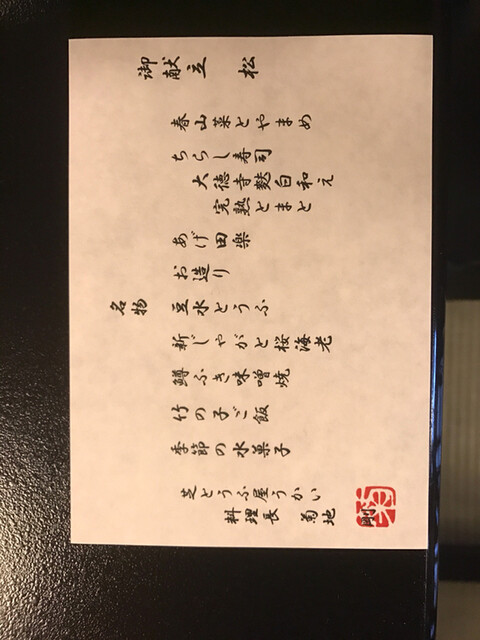 御献立 松
春山菜とやまめ
ちらし寿司
大徳寺麩白和え
完熟とまと
あげ田楽
お造り
名物 豆水とうふ
新じゃがと桜海老
鱒ふき味噌焼
竹の子ご飯
季節の水菓子
芝とうふ屋うかい
料理長 菊地 剛
菊